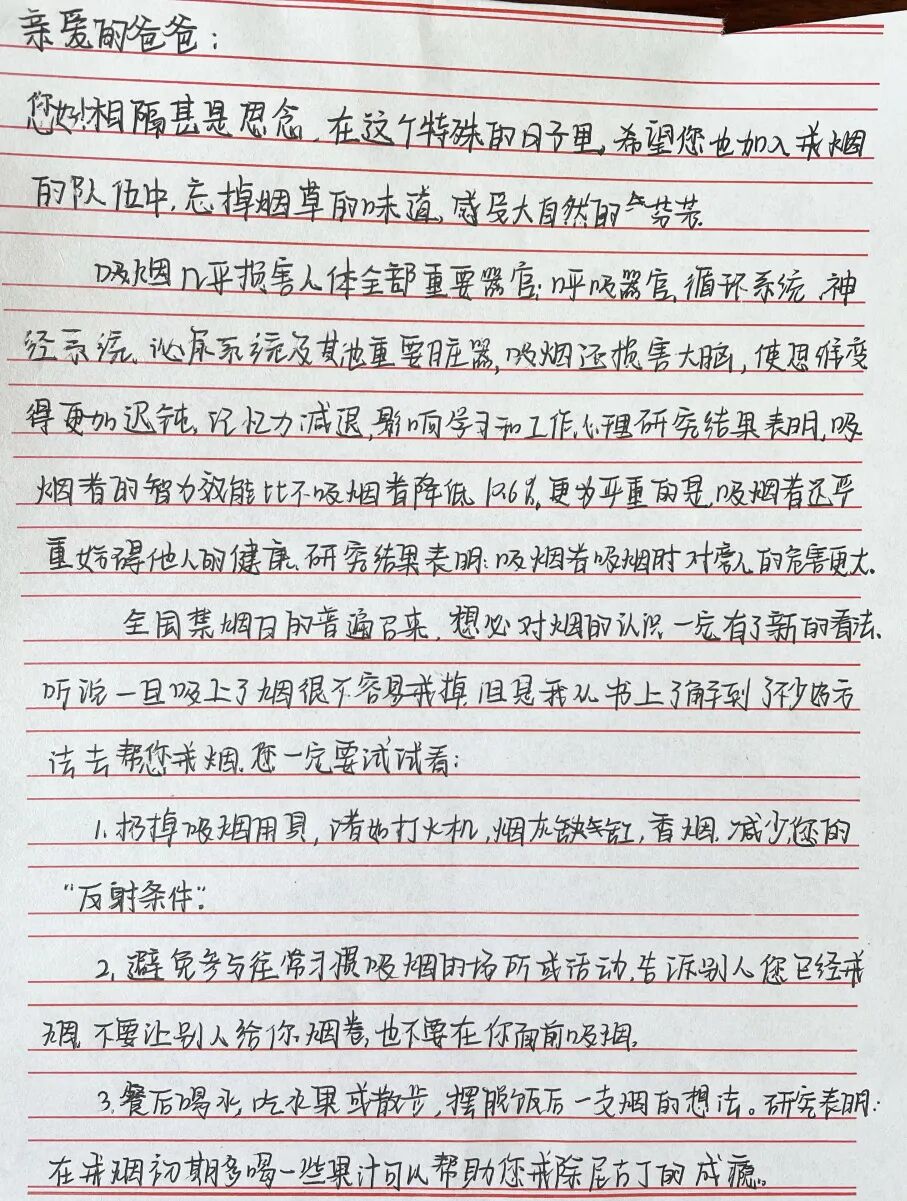 亲爱的爸爸：
您好!相隔甚是思念，在这个特殊的日子里，希望您也加入戒烟
的队伍中，忘掉烟草的味道，感受大自然的气芬芳。
吸烟几乎损害人体全部重要器官：呼吸器官、循环系统、神
经系统、泌尿系统及其他重要脏器，吸烟还损害大脑，使思维变
得更加迟钝，记忆力减退，影响学习和工作，心理研究结果表明，吸
烟者的智力效能比不吸烟者降低10.6%。更为严重的是，吸烟者还严
重妨碍他人的健康，研究结果表明：吸烟者吸烟时对旁人的危害更大。
全国禁烟日的普遍召来，想必对烟的认识一定有了新的看法，
听说一旦吸上了烟很不容易戒掉，但是我从书上了解到了不少好方
法去帮您戒烟，您一定要试试看：
1.扔掉吸烟用具，诸如打火机，烟灰缸，香烟，减少您的
“反射条件”。
2.避免参与往常习惯吸烟的场所或活动，告诉别人您已经戒
烟，不要让别人给你烟卷，也不要在你面前吸烟。
3.餐后喝水，吃水果或散步，摆脱饭后一支烟的想法。研究表明：
在戒烟初期多喝一些果汁可以帮助您戒除尼古丁的成瘾。